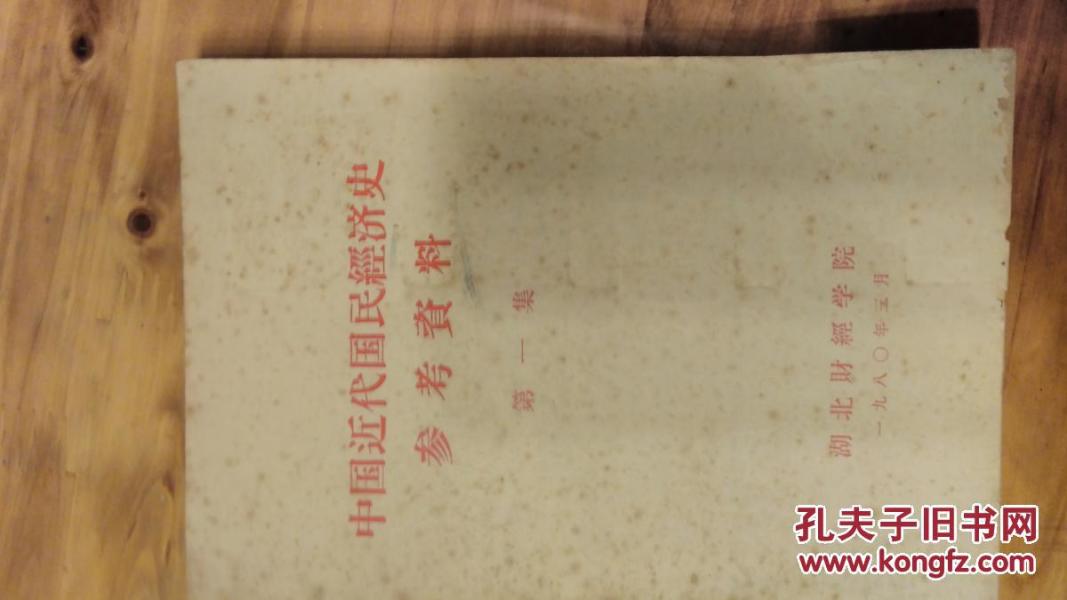 中国近代国民經济史
参考資料
第一集
湖北財經学院
一九八〇年三月
孔夫子旧书网
www.kongfz.com